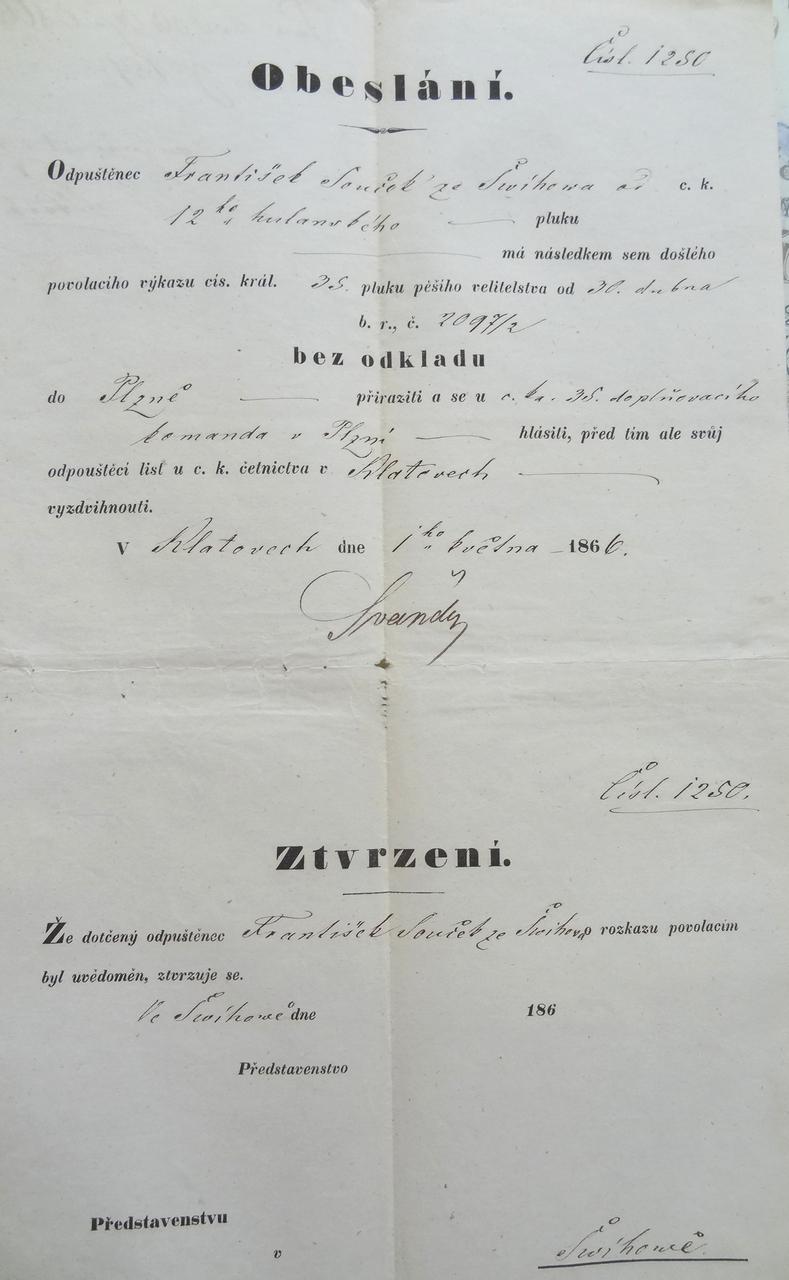 Čísl. 1250
Obeslání.
Odpuštěnec František Souček ze Šwihowa od c. k.
12ho hulanského pluku
má následkem sem došlého
povolacího výkazu cís. král. 35. pluku pěšího velitelstva od 30. dubna
b. r., č. 2097/2
bez odkladu
do Plzně přiraziti a se u c. k. 35. doplňovacího
komanda v Plzni hlásiti, před tím ale svůj
odpouštěcí list u c. k. četnictva v Klatovech
vyzdvihnouti.
V Klatovech dne 1ho května 1866.
Švandy
Čísl. 1250.
Ztvrzení.
Že dotčený odpuštěnec František Souček ze Šwihowa o rozkazu povolacím
byl uvědoměn, ztvrzuje se.
Ve Šwihowě dne 186
Představenstvo
Představenstvu
v Šwihowě